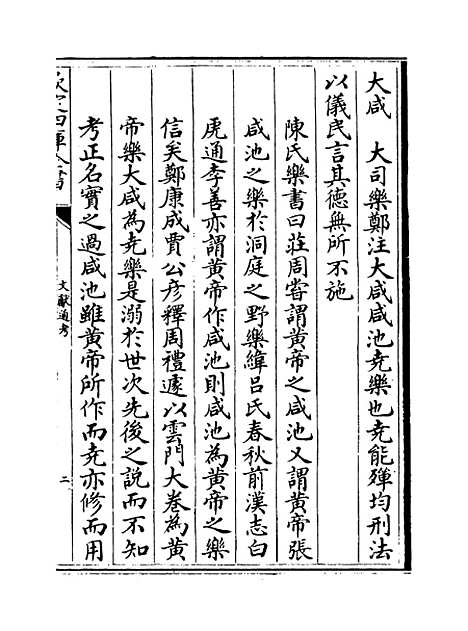 大咸　大司樂鄭注大咸咸池尭樂也尭能殫均刑法
以儀民言其德無所不施
陳氏樂書曰莊周嘗謂黄帝之咸池又謂黄帝張
咸池之樂於洞庭之野樂緯吕氏春秋前漢志白
虎通李善亦謂黄帝作咸池則咸池為黄帝之樂
信矣鄭康成賈公彦釋周禮遽以雲門大卷為黄
帝樂大咸為尭樂是溺於世次先後之說而不知
考正名實之過咸池雖黄帝所作而尭亦修而用
欽定四庫全書
文獻通考
二